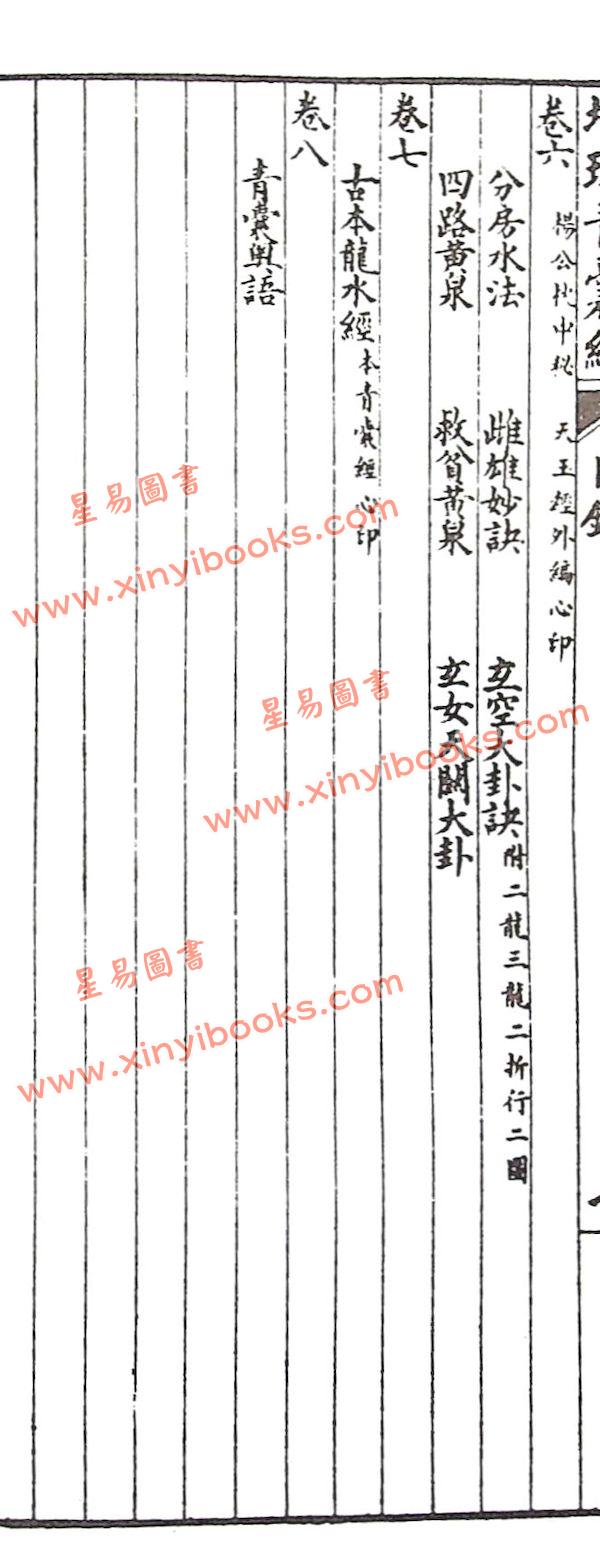 卷六 楊公枕中秘 天玉經外編心印
分房水法 雌雄妙訣 玄空大卦訣 附二龍三龍二折行二圖
四路黃泉 救貧黃泉 玄女天關大卦
卷七
古本龍水經 本青囊經心印
卷八
青囊奥語
星易圖書
www.xinyibooks.com
星易圖書
www.xinyibooks.com
星易圖書
www.xinyibooks.com